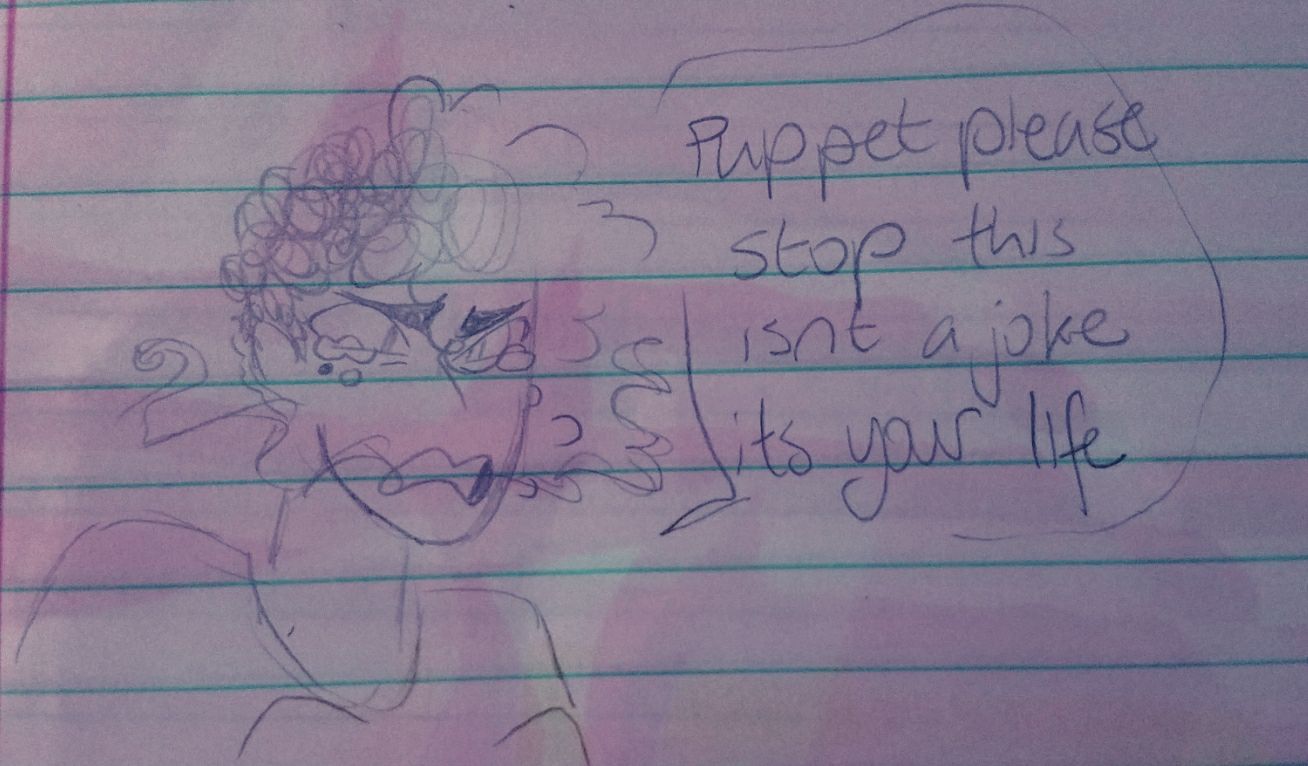 Puppet please
stop this
isnt a joke
its your life